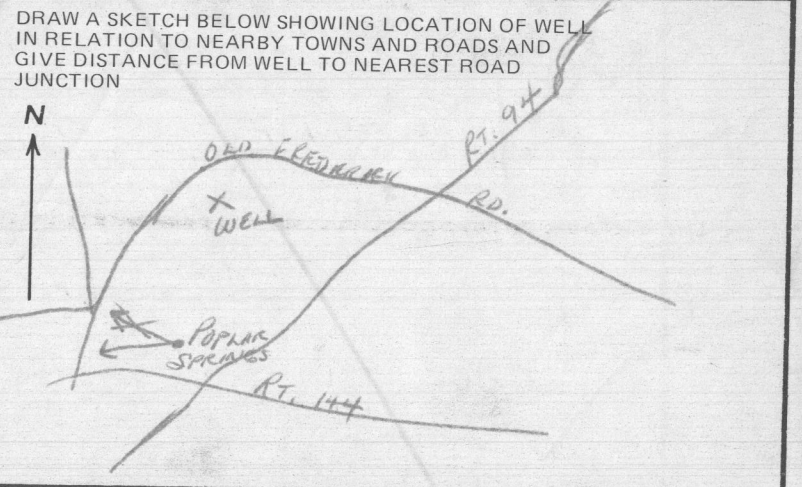 DRAW A SKETCH BELOW SHOWING LOCATION OF WELL
IN RELATION TO NEARBY TOWNS AND ROADS AND
GIVE DISTANCE FROM WELL TO NEAREST ROAD
JUNCTION
N
RT. 94
OLD FREDERICK RD.
X
WELL
POPLAR
SPRINGS
RT. 144